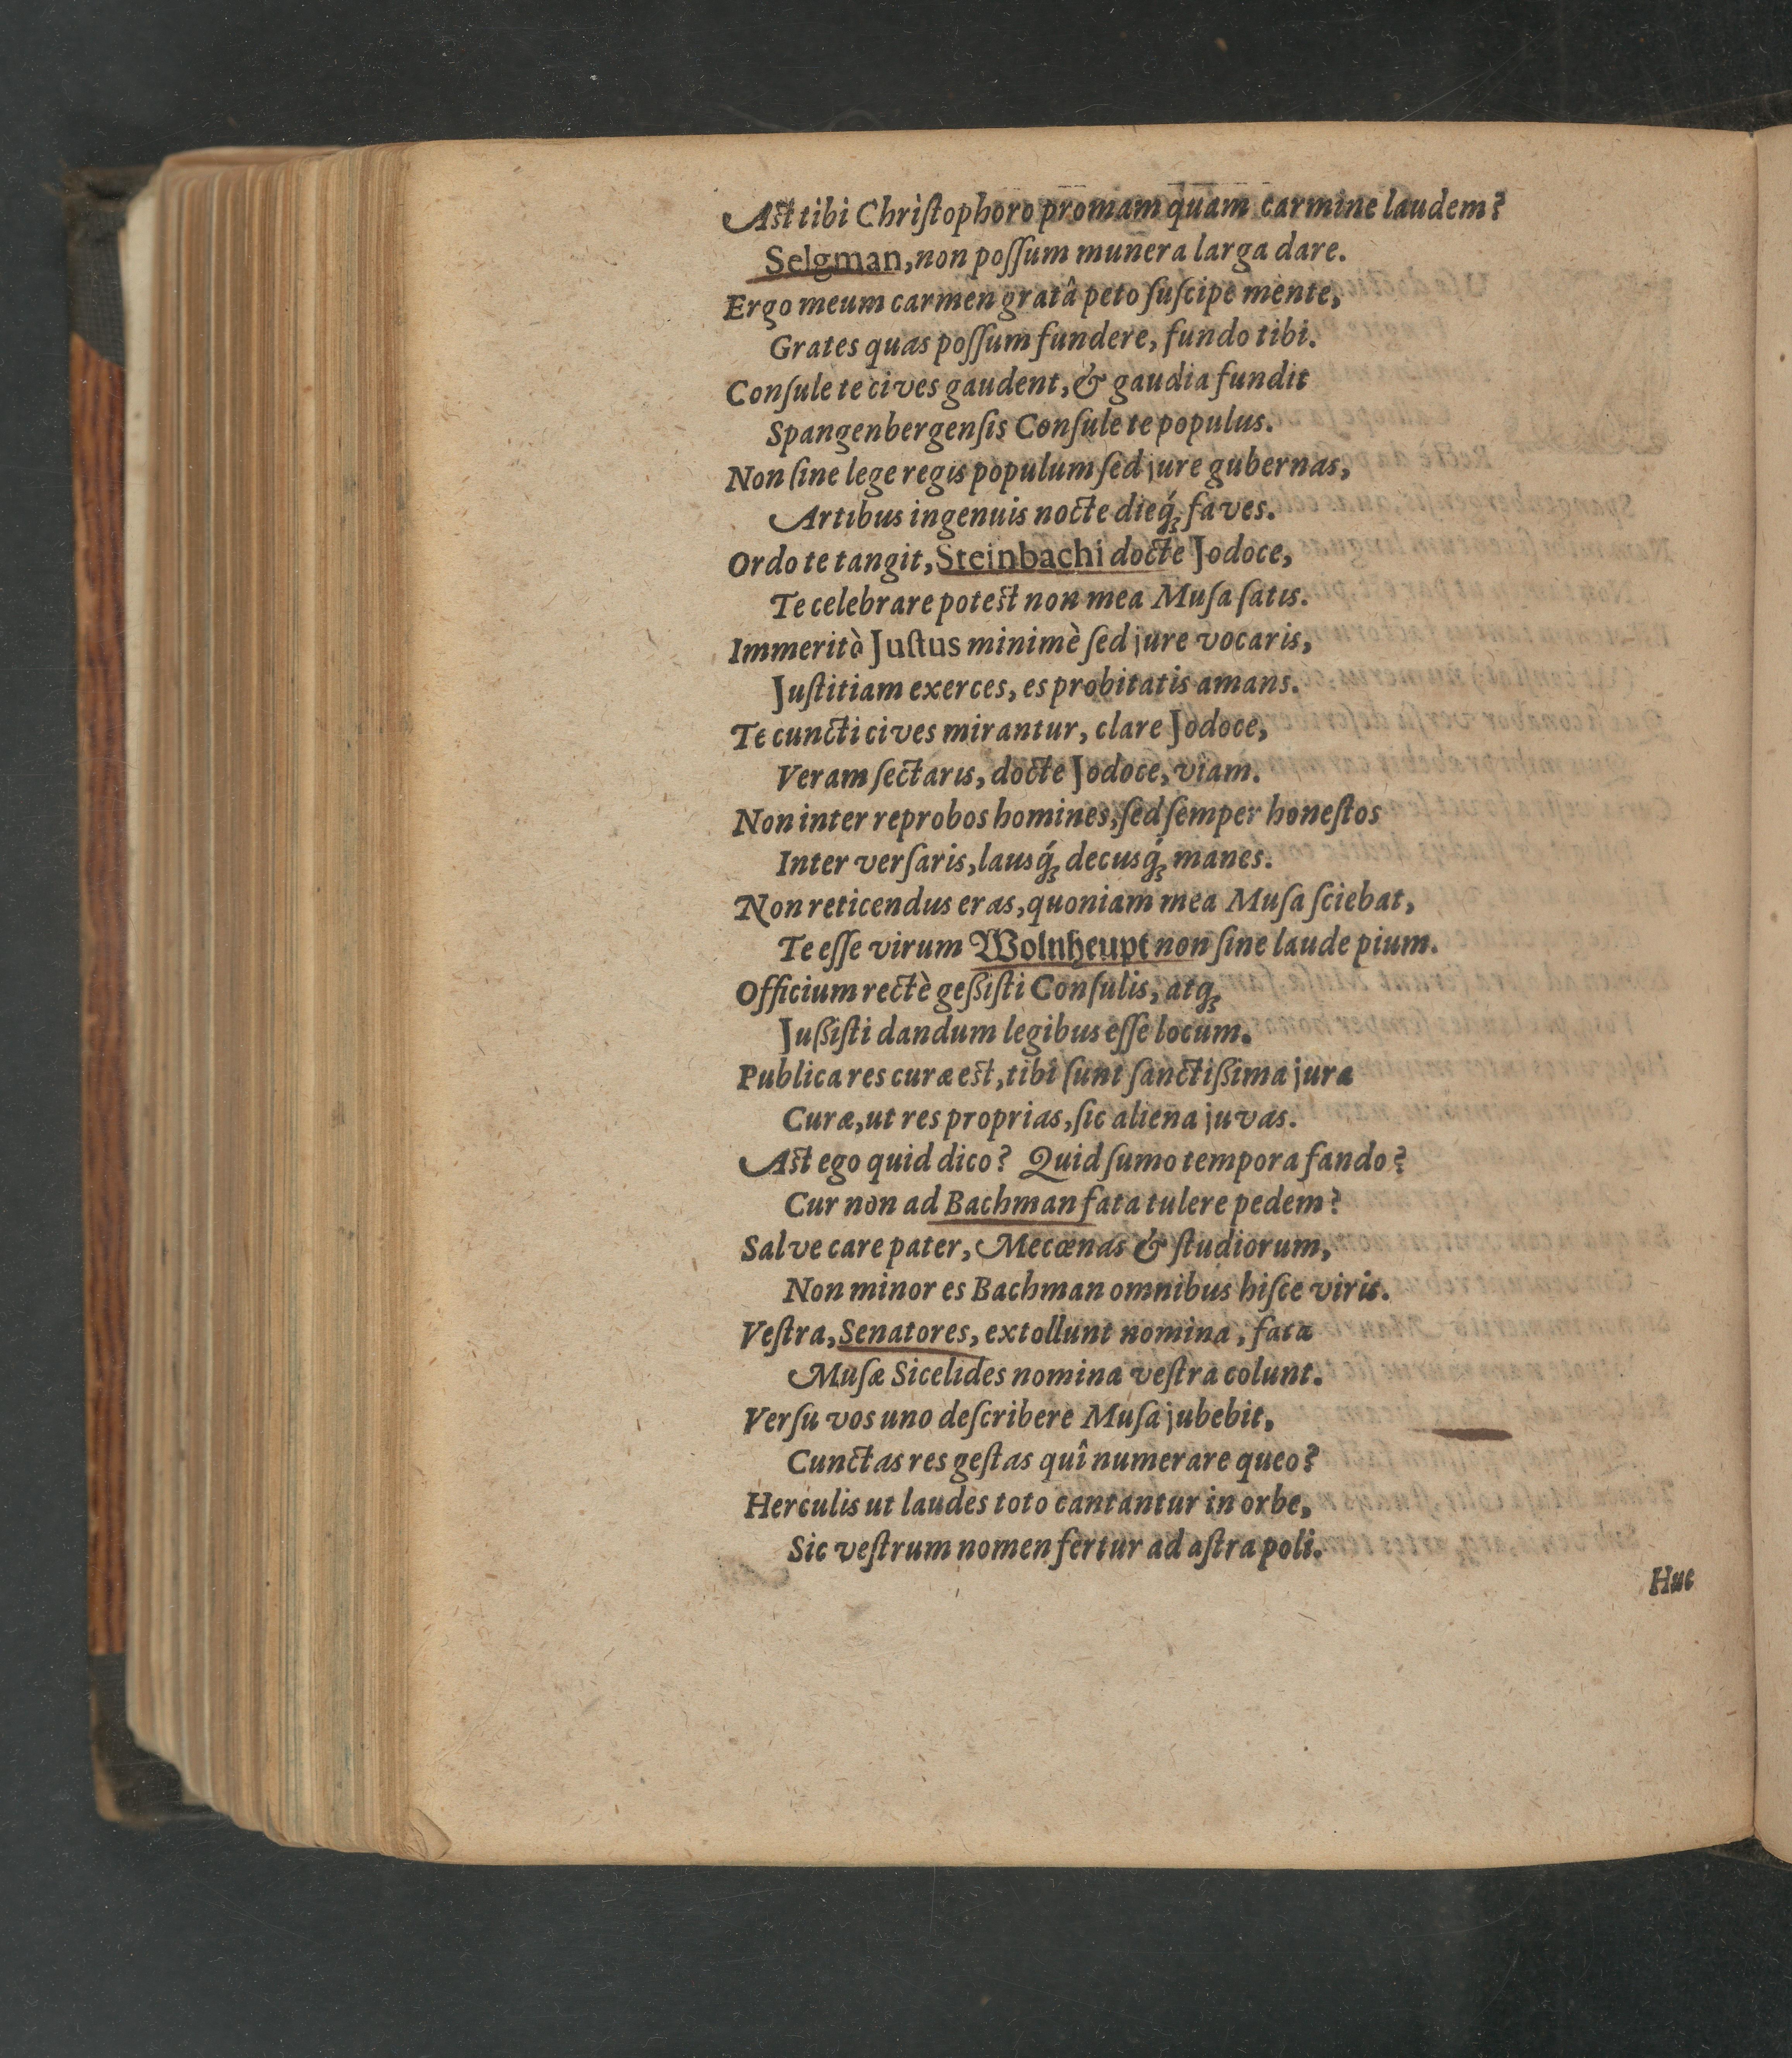 Ast tibi Chriſtophoro promam quam carmine laudem?
Selgman, non poſſum munera larga dare.
Ergo meum carmen gratâ peto ſuſcipe mente,
Grates quas poſſum fundere, fundo tibi.
Conſule te cives gaudent, & gaudia fundit
Spangenbergenſis Conſule te populus.
Non ſine lege regis populum ſed jure gubernas,
Artibus ingenuis nocte dieq́ꝫ faves.
Ordo te tangit, Steinbachi docte Jodoce,
Te celebrare potest non mea Muſa ſatis.
Immeritò Juſtus minimè ſed jure vocaris,
Juſtitiam exerces, es probitatis amans.
Te cuncti cives mirantur, clare Jodoce,
Veram ſectaris, docte Jodoce, viam.
Non inter reprobos homines, ſed ſemper honeſtos
Inter verſaris, lausq́ꝫ decusq́ꝫ manes.
Non reticendus eras, quoniam mea Muſa ſciebat,
Te eſſe virum Wolnheupt non ſine laude pium.
Officium rectè geßiſti Conſulis, atqꝫ
Jußiſti dandum legibus eſſe locum.
Publica res curæ est, tibi ſunt ſanctißima jura
Curæ, ut res proprias, ſic aliena juvas.
Ast ego quid dico? Quid ſumo tempora fando?
Cur non ad Bachman fata tulere pedem?
Salve care pater, Mecœnas & ſtudiorum,
Non minor es Bachman omnibus hiſce viris.
Veſtra, Senatores, extollunt nomina, fata
Muſæ Sicelides nomina veſtra colunt.
Verſu vos uno deſcribere Muſa jubebit,
Cunctas res geſtas quî numerare queo?
Herculis ut laudes toto cantantur in orbe,
Sic veſtrum nomen fertur ad aſtra poli.
Huc